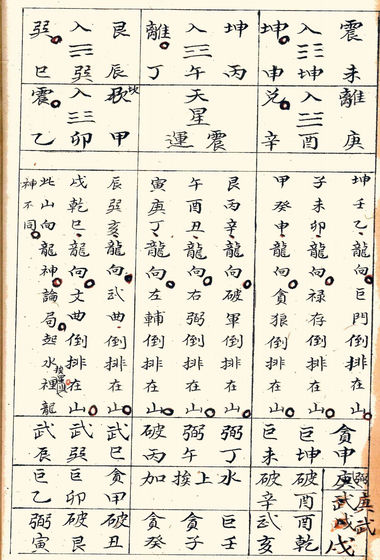 震未
入☷坤
坤申
坤丙
入☲午
離丁
艮辰
入☴巽
巽巳
離庚
入☱酉
兌辛
天星
震運
坎甲
入☳卯
震乙
坤壬乙龍向巨門倒排在山
子未卯龍向祿存倒排在山
甲癸申龍向貪狼倒排在山
艮丙辛龍向破軍倒排在山
午酉丑龍向右弼倒排在山
寅庚丁龍向左輔倒排在山
辰巽亥龍向武曲倒排在山
戌乾巳龍向文曲倒排在山
此山向龍神論局起水裡龍
神不同
貪申
巨坤
巨未
弼丁
弼午
破丙
武巳
武巽
武辰
弼庚
破酉
破辛
水上挨加
貪甲
巨卯
巨乙
武戌
武乾
武亥
巨壬
貪子
貪癸
破丑
破艮
弼寅